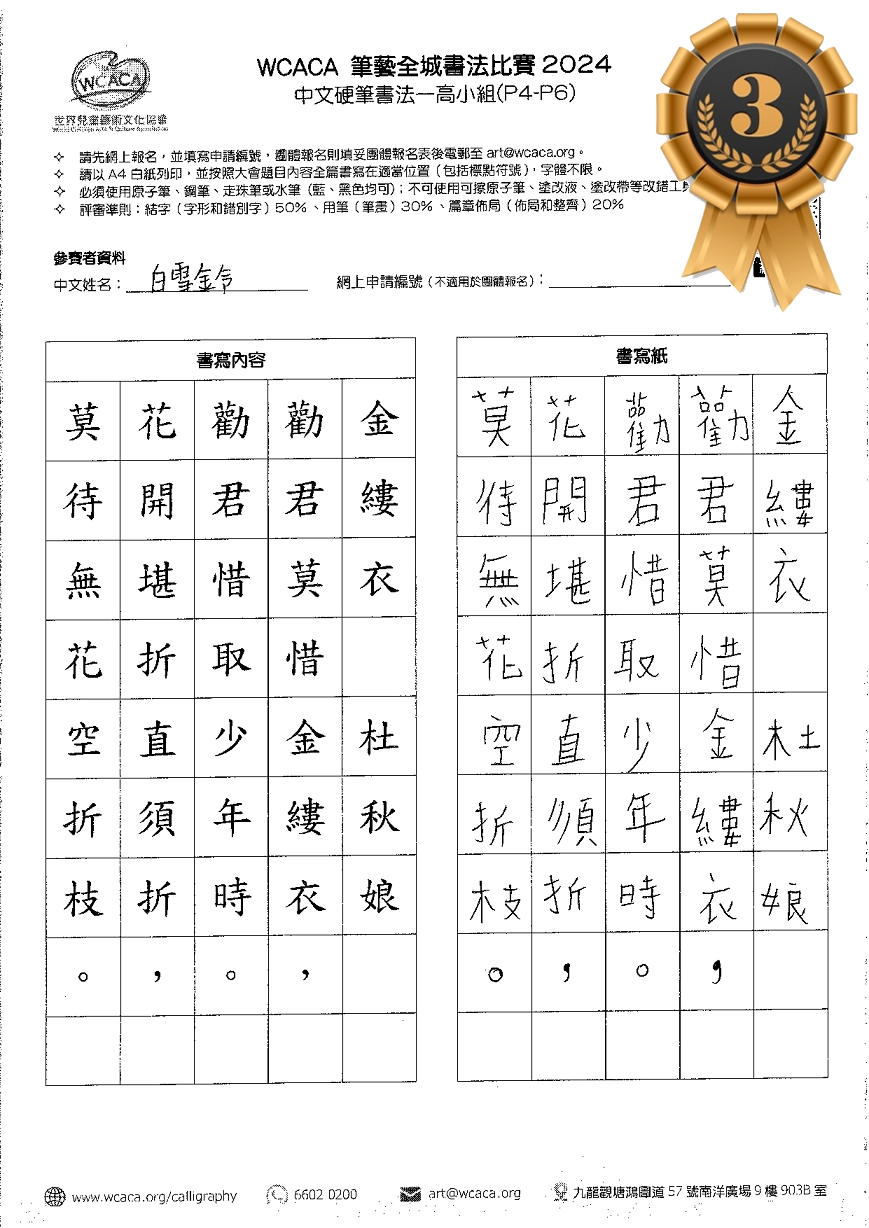 WCACA
世界兒童藝術文化協會
WCACA 筆藝全城書法比賽 2024
中文硬筆書法—高小組(P4-P6)
3
✧ 請先網上報名，並填寫申請編號，團體報名則填妥團體報名表後電郵至 art@wcaca.org。
✧ 請以 A4 白紙列印，並按照大會題目內容全篇書寫在適當位置（包括標點符號），字體不限。
✧ 必須使用原子筆、鋼筆、走珠筆或水筆（藍、黑色均可）；不可使用可擦原子筆、塗改液、塗改帶等改錯工具
✧ 評審準則：結字（字形和錯別字）50% 、用筆（筆畫）30% 、篇章佈局（佈局和整齊）20%
參賽者資料
中文姓名： 白雪金令 網上申請編號（不適用於團體報名）：
書寫內容
莫 花 勸 勸 金
待 開 君 君 縷
無 堪 惜 莫 衣
花 折 取 惜
空 直 少 金 杜
折 須 年 縷 秋
枝 折 時 衣 娘
。 ， 。 ，
書寫紙
莫 花 勸 勸 金
待 開 君 君 縷
無 堪 惜 莫 衣
花 折 取 惜
空 直 少 金 杜
折 須 年 縷 秋
枝 折 時 衣 娘
。 ， 。 ，
www.wcaca.org/calligraphy 6602 0200 art@wcaca.org 九龍觀塘鴻圖道 57 號南洋廣場 9 樓 903B 室